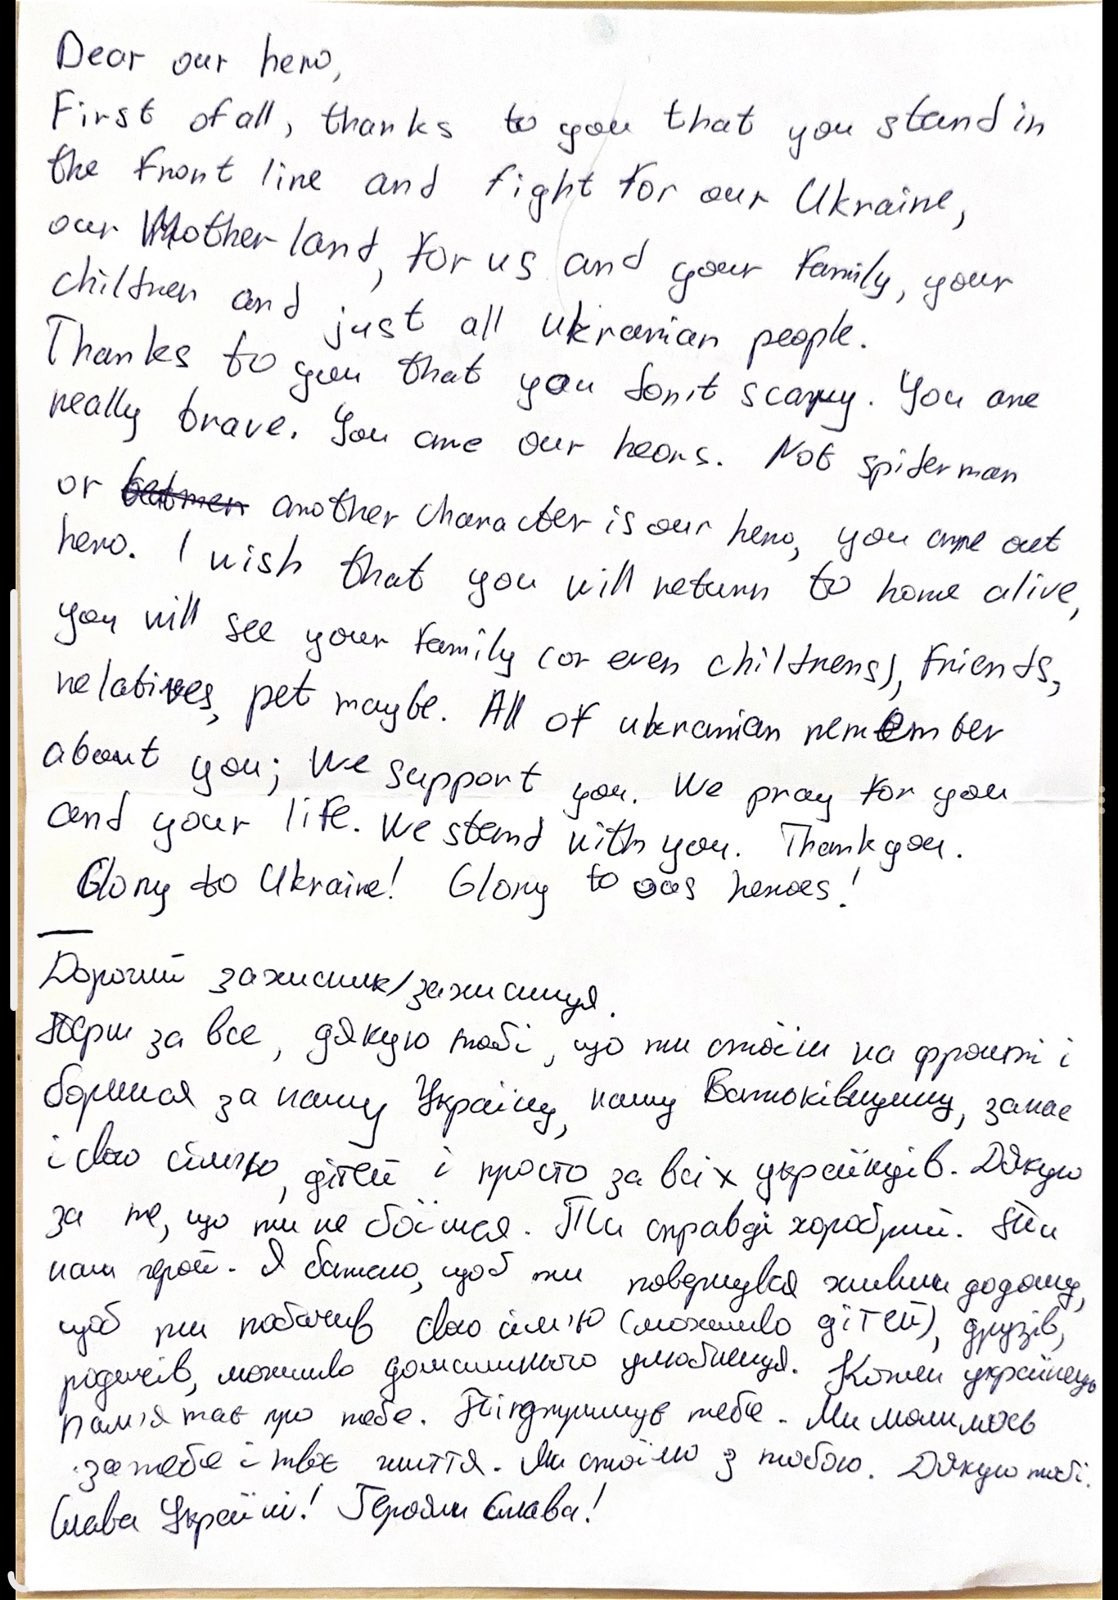 Dear our hero,
First of all, thanks to you that you stand in
the front line and fight for our Ukraine,
our Motherland, for us and your family, your
children and just all ukranian people.
Thanks to you that you don't scary. You are
really brave. You are our heors. Not spiderman
or batmen another character is our hero, you are out
hero. I wish that you will return to home alive,
you will see your family (or even childrens), friends,
relatives, pet maybe. All of ukranian remember
about you; We support you. We pray for you
and your life. We stend with you. Thank you.
Glory to Ukraine! Glory to heroes!
Дорогий захисник/захисниця.
Перш за все, дякую тобі, що ти стоїш на фронті і
борешся за нашу Україну, нашу Батьківщину, за нас
і свою сім'ю, дітей і просто за всіх українців. Дякую
за те, що ти не боїшся. Ти справді хоробрий. Ти
наш герой. Я бажаю, щоб ти повернувся живим додому,
щоб ти побачив свою сім'ю (можливо дітей), друзів,
родичів, можливо домашнього улюбленця. Кожен українець
пам'ятає про тебе. Підтримує тебе. Ми молимось
за тебе і твоє життя. Ми стоїмо з тобою. Дякую тобі.
Слава Україні! Героям Слава!